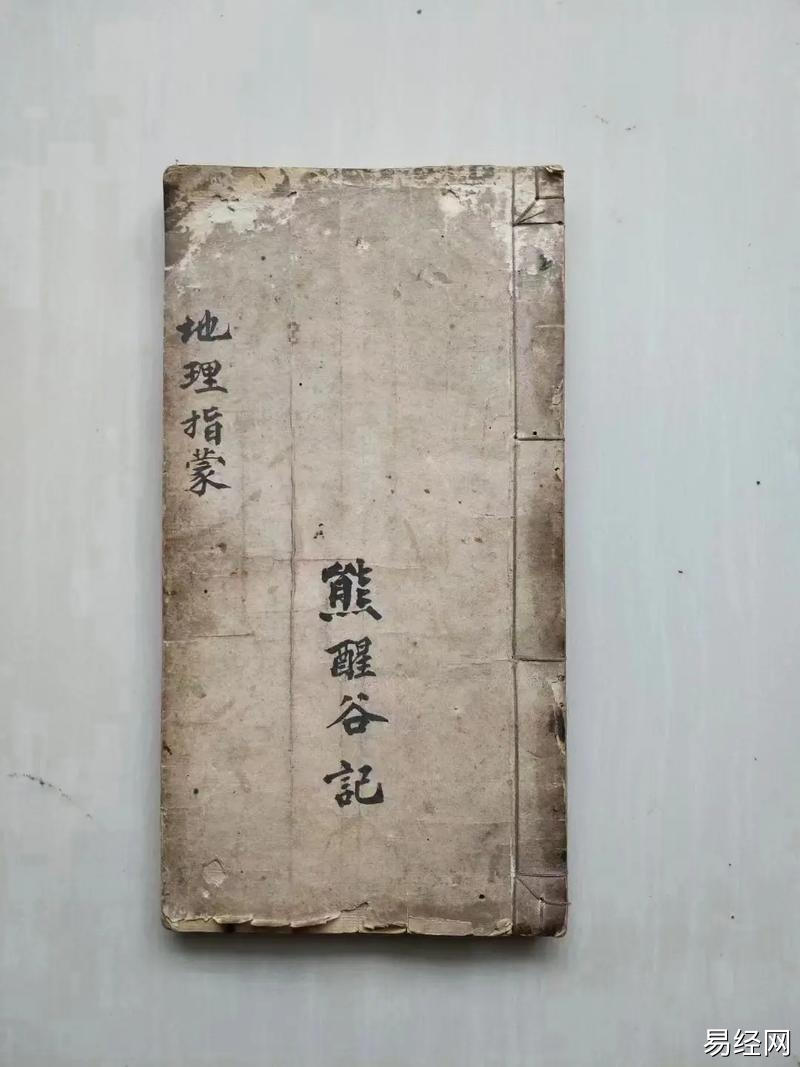 地理指蒙
熊醒谷記
易经网